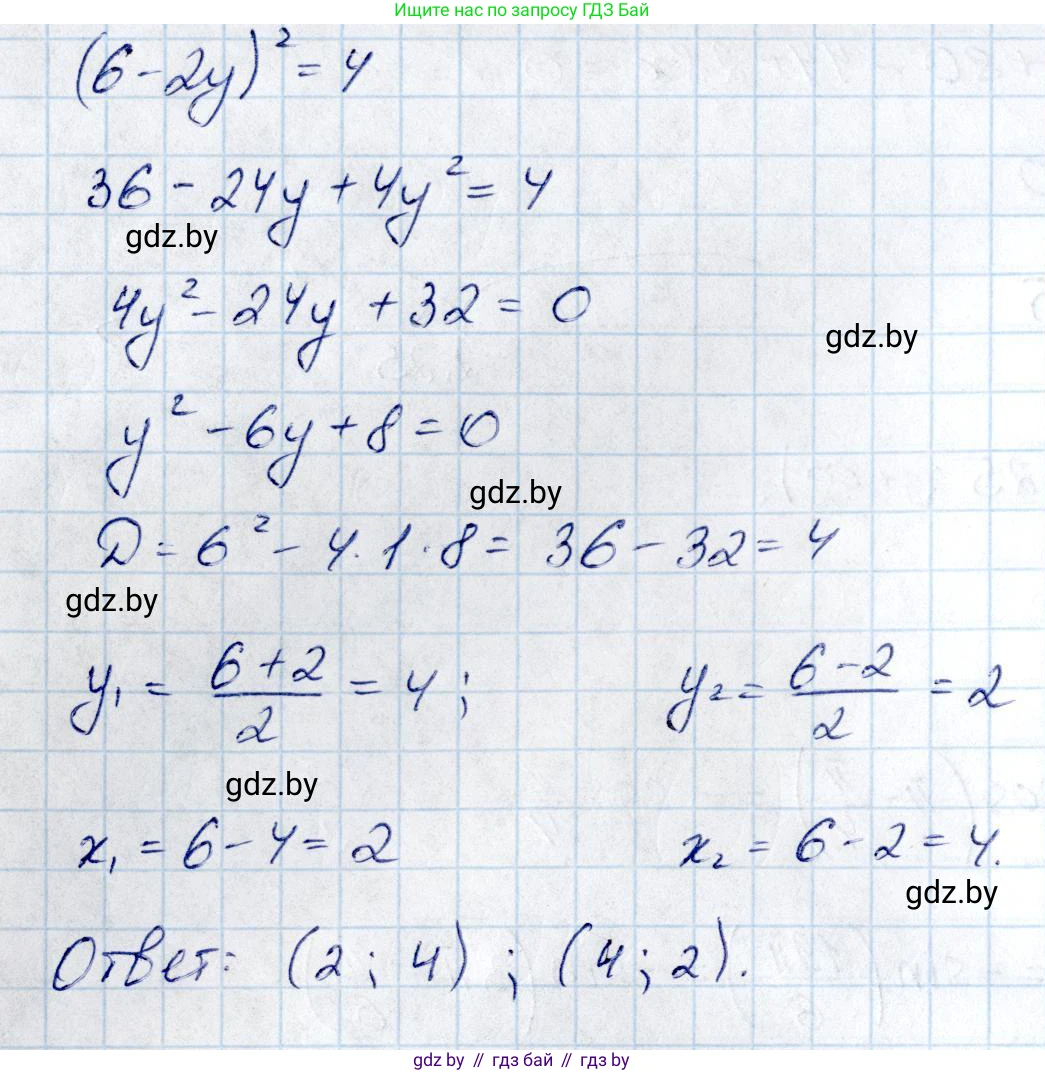 Ищите нас по запросу ГДЗ Бай
(6-2y)² = 4
36 - 24y + 4y² = 4
gdz.by
4y² - 24y + 32 = 0
gdz.by
y² - 6y + 8 = 0
gdz.by
D = 6² - 4·1·8 = 36 - 32 = 4
gdz.by
y₁ = (6+2)/2 = 4; y₂ = (6-2)/2 = 2
gdz.by
x₁ = 6 - 4 = 2 x₂ = 6 - 2 = 4.
gdz.by
Ответ: (2; 4); (4; 2).
gdz.by // гдз бай // gdz by